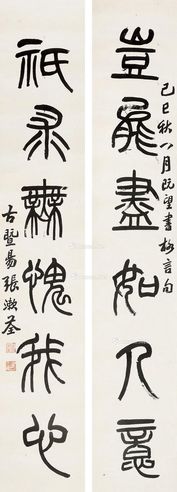 豈能盡如人意
己巳秋八月既望書梅言句
祇求無愧我心
古暨易張漱荃